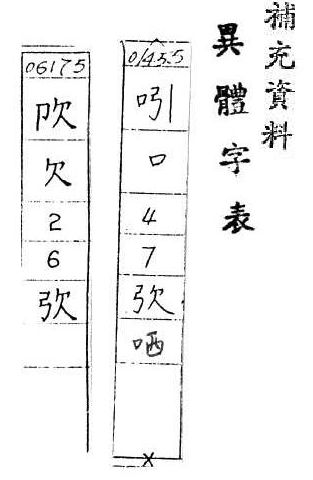 補充資料
異體字表
01455
吲
口
4
7
弞
哂
06175
欠
2
6
弞